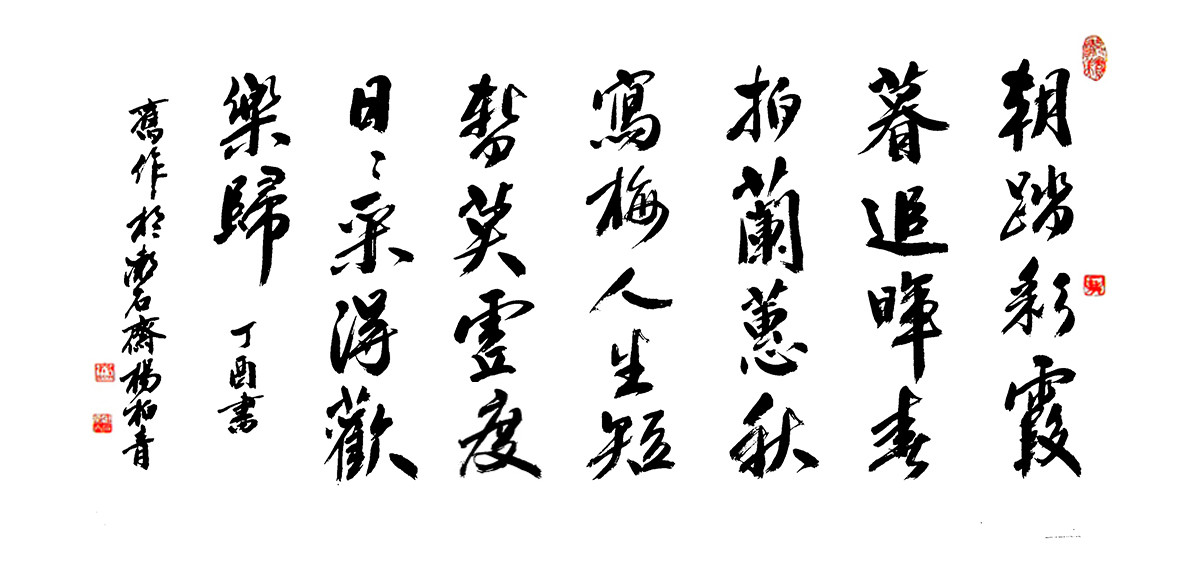 朝踏彩霞
暮追暉春
拍蘭蕙秋
寫梅人生短
暫莫虛度
日々采得歡
樂歸 丁酉書
舊作於漱石齋楊柏青